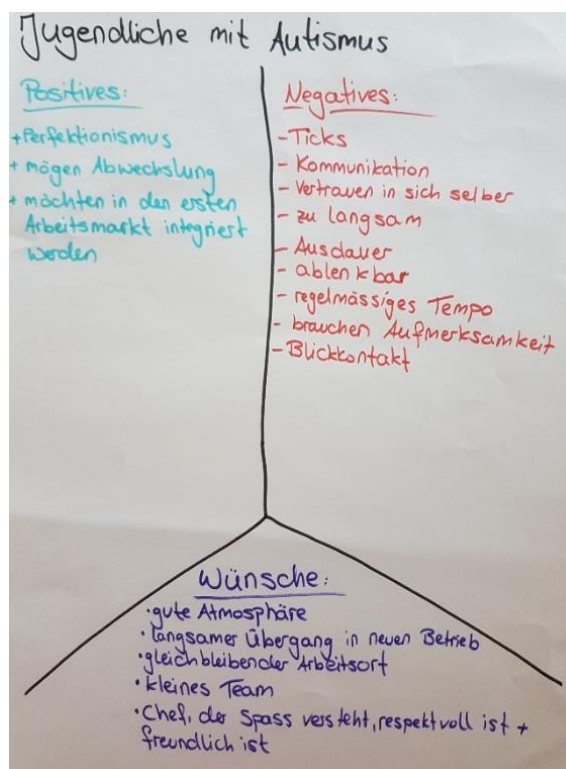 Jugendliche mit Autismus
Positives:
+ Perfektionismus
+ mögen Abwechslung
+ möchten in den ersten
Arbeitsmarkt integriert
werden
Negatives:
- Ticks
- Kommunikation
- Vertrauen in sich selber
- zu langsam
- Ausdauer
- ablenkbar
- regelmässiges Tempo
- brauchen Aufmerksamkeit
- Blickkontakt
Wünsche:
• gute Atmosphäre
• langsamer Übergang in neuen Betrieb
• gleichbleibender Arbeitsort
• kleines Team
• Chef, der Spass versteht, respektvoll ist +
freundlich ist